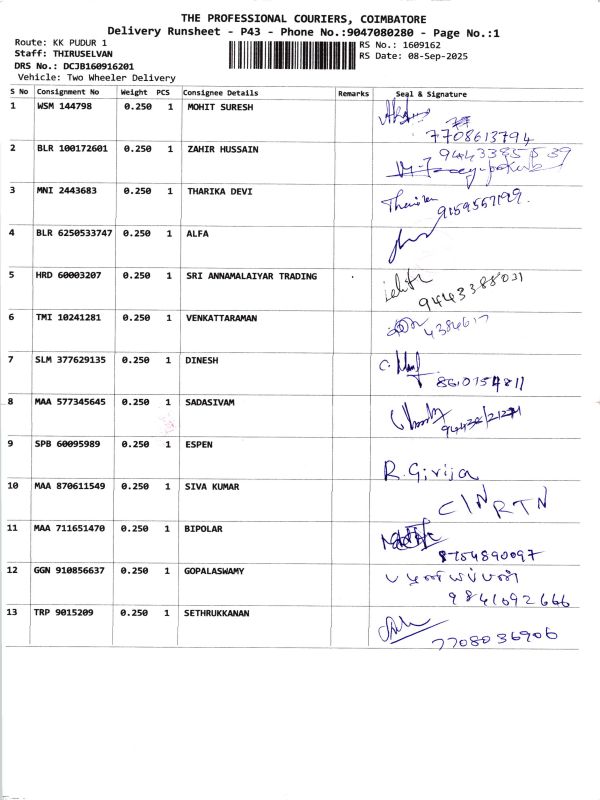 THE PROFESSIONAL COURIERS, COIMBATORE
Delivery Runsheet - P43 - Phone No.:9047080280 - Page No.:1
Route: KK PUDUR 1
RS No.: 1609162
Staff: THIRUSELVAN
RS Date: 08-Sep-2025
DRS No.: DCJB160916201
Vehicle: Two Wheeler Delivery
S No Consignment No Weight PCS Consignee Details Remarks Seal & Signature
1 WSM 144798 0.250 1 MOHIT SURESH
7708613794
2 BLR 100172601 0.250 1 ZAHIR HUSSAIN
3 MNI 2443683 0.250 1 THARIKA DEVI
9159557199
4 BLR 6250533747 0.250 1 ALFA
5 HRD 60003207 0.250 1 SRI ANNAMALAIYAR TRADING
9443388031
6 TMI 10241281 0.250 1 VENKATTARAMAN
4384617
7 SLM 377629135 0.250 1 DINESH
8610154811
8 MAA 577345645 0.250 1 SADASIVAM
9 SPB 60095989 0.250 1 ESPEN
R. Girija
10 MAA 870611549 0.250 1 SIVA KUMAR
11 MAA 711651470 0.250 1 BIPOLAR
8754890097
12 GGN 910856637 0.250 1 GOPALASWAMY
9841092666
13 TRP 9015209 0.250 1 SETHRUKKANAN
7708036906